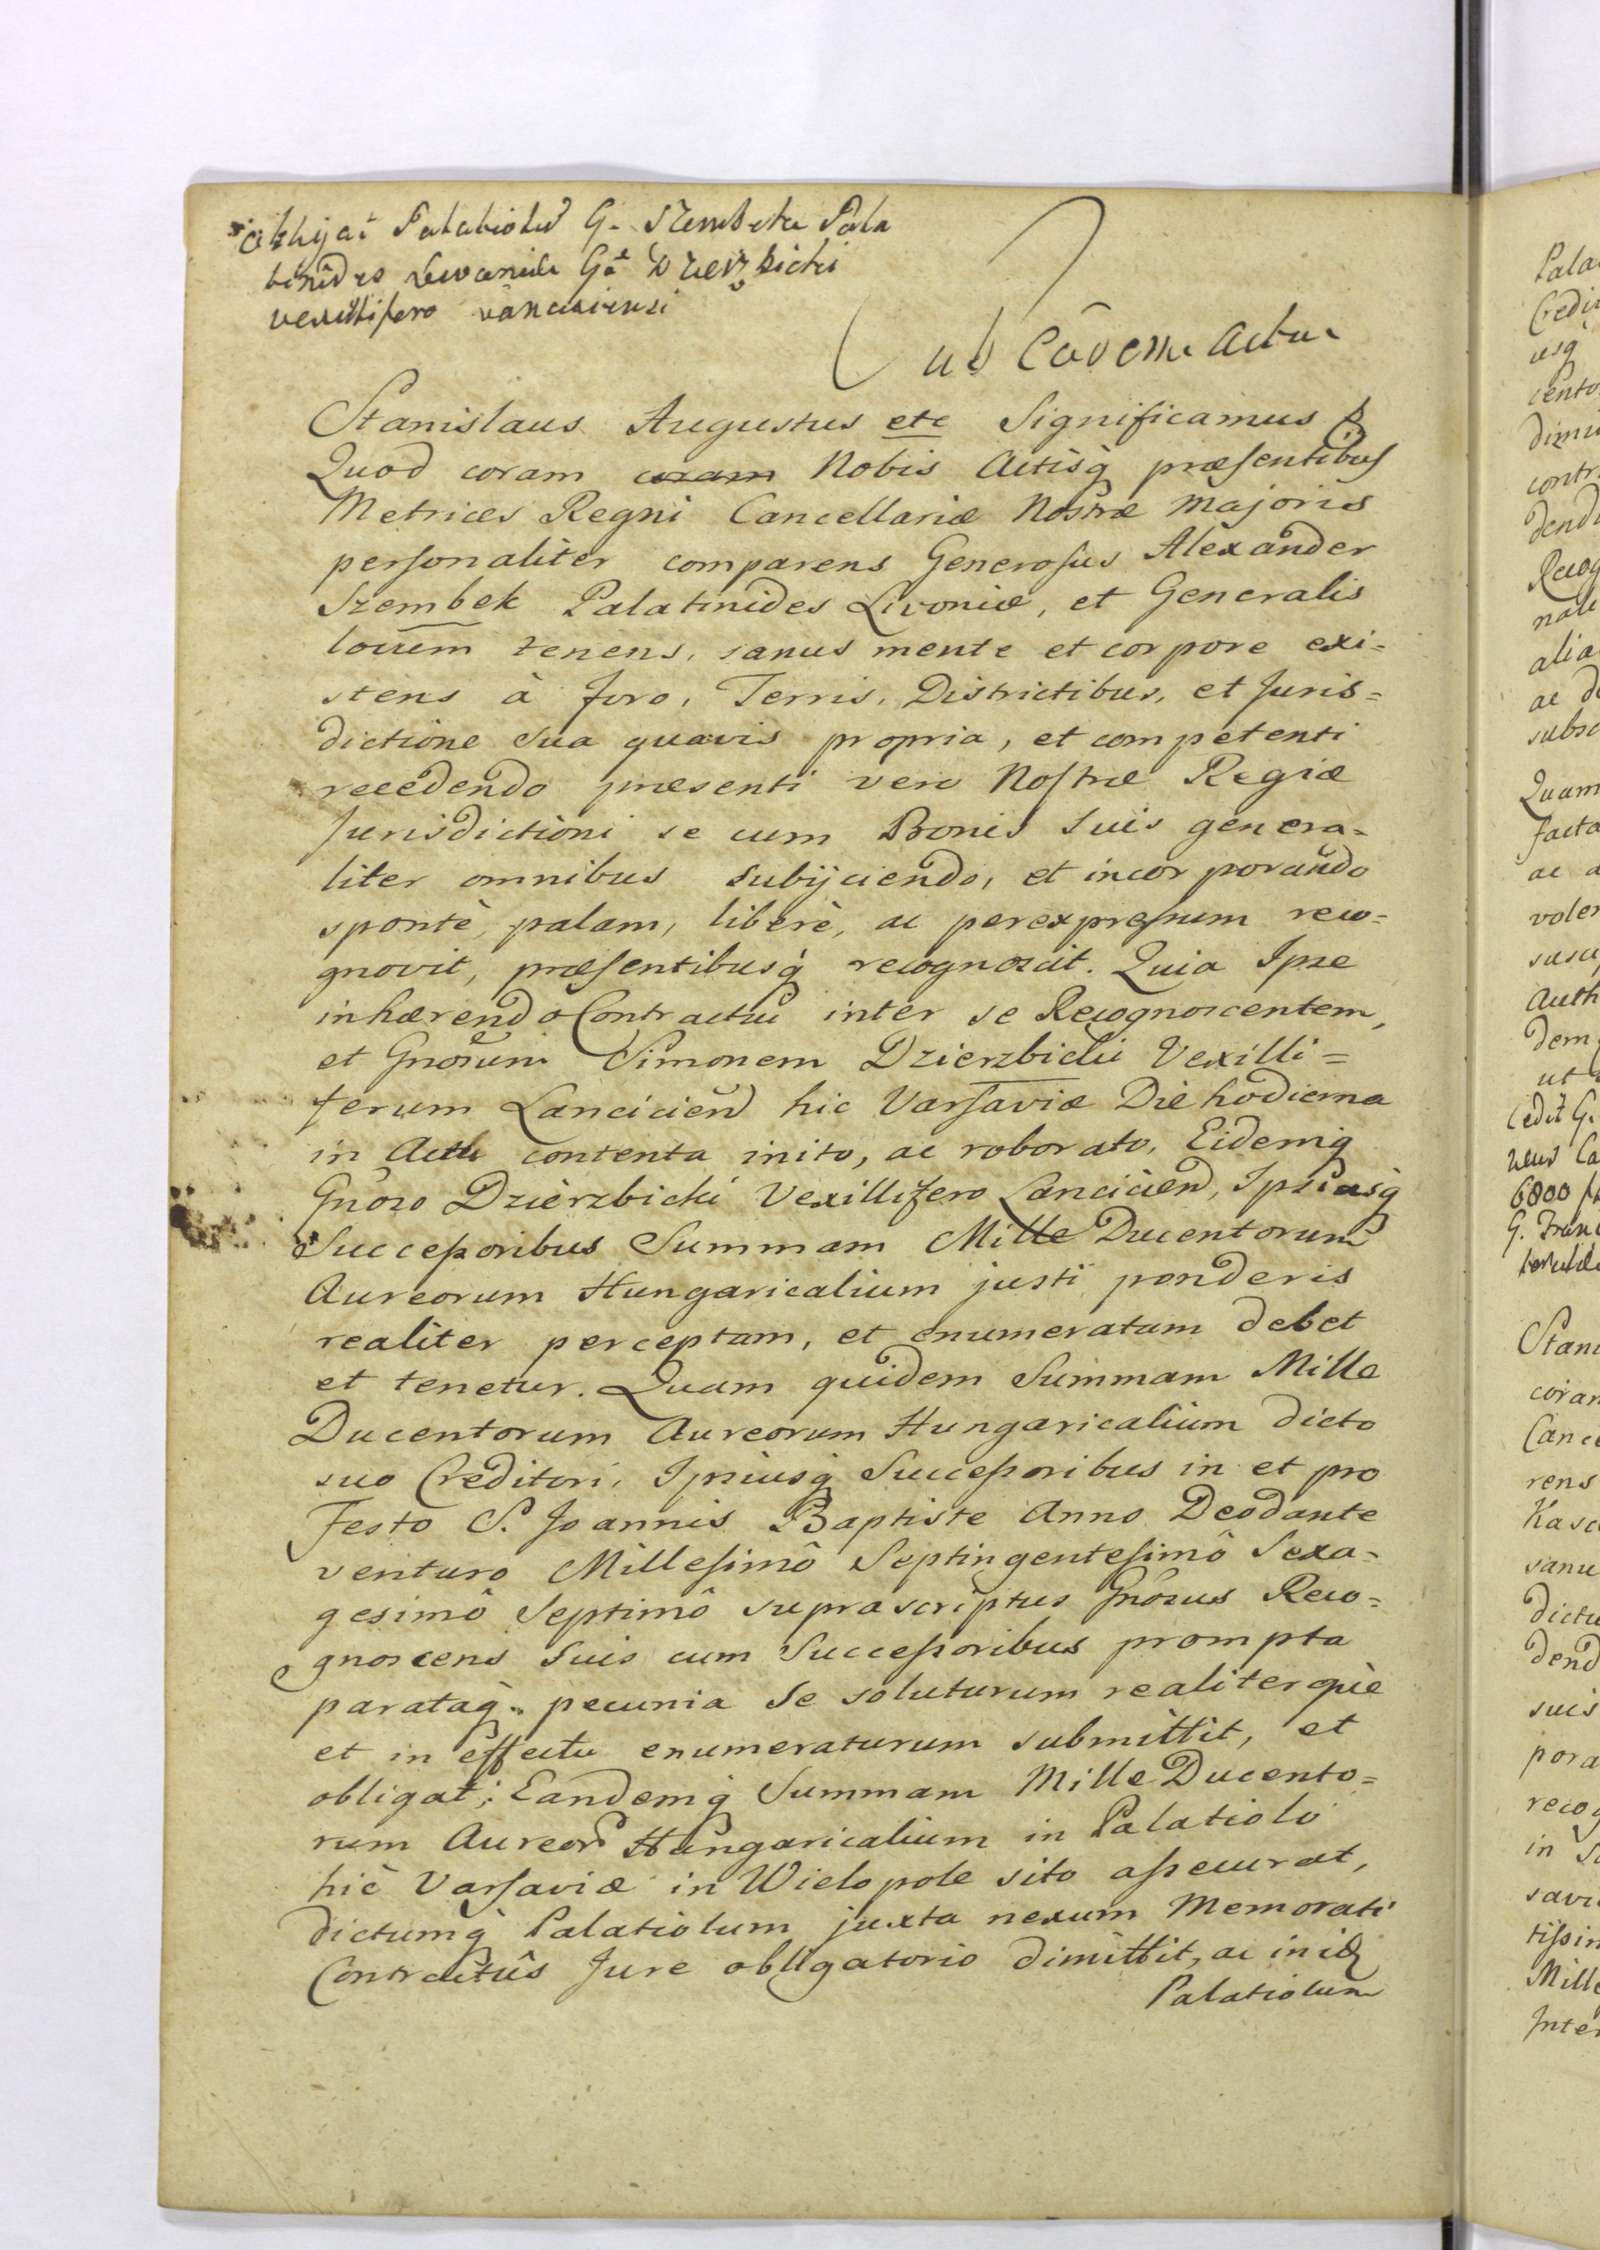 Obligat Palatiolũ G. Szembek Pala
tinides Livoniæ G. Dzierzbicki
vexillifero Lanciciensi
Sub Eâdem Actu
Stanislaus Augustus etc Significamus
Quod coram coram Nobis Actisq̀ præsentibus
Metrices Regni Cancellariæ Nostræ Majoris
personaliter comparens Generosus Alexander
Szembek Palatinides Livoniæ, et Generalis
locum tenens, sanus mente et corpore exi=
stens à foro, Terris, Districtibus, et Juris=
dictione sua quavis propria, et competenti
recedendo præsenti vero Nostræ Regiæ
Jurisdictioni se cum Bonis suis genera=
liter omnibus subijciendo, et incorporando
spontè, palam, liberè, ac per expressum reco=
gnovit, præsentibusq̀ recognoscit. Quia Ipse
inhærendo Contractui inter se Recognoscentem,
et Gnosum Simonem Dzierzbicki Vexilli=
ferum Lancicien̄ hic Varsaviæ Die hodierna
in Actu contenta inito, ac roborato, Eidemq̀
Gnoso Dzierzbicki Vexillifero Lanciciēn, Ipsiusq̀
Successoribus Summam Mille Ducentorum
Aureorum Hungaricalium justi ponderis
realiter perceptam, et enumeratam debet
et tenetur. Quam quidem Summam Mille
Ducentorum Aureorum Hungaricalium dicto
suo Creditori, Ipsiusq̀ Successoribus in et pro
Festo S. Joannis Baptiste Anno Deo dante
venturo Millesimô Septingentesimô Sexa=
gesimô Septimô suprascriptus Gnôsus Reco=
gnoscens suis cum Successoribus prompta
parataq̀ pecunia se soluturum realiterquè
et in effectu enumeraturum submittit, et
obligat; Eandemq̀ Summam Mille Ducento=
rum Aureorũ Hungaricalium in Palatiolo
hic Varsaviæ in Wielopole sito assecurat,
dictumq̀ Palatiolum juxta nexum Memorati
Contractûs Jure obligatorio dimittit, ac in id
Palatiolum